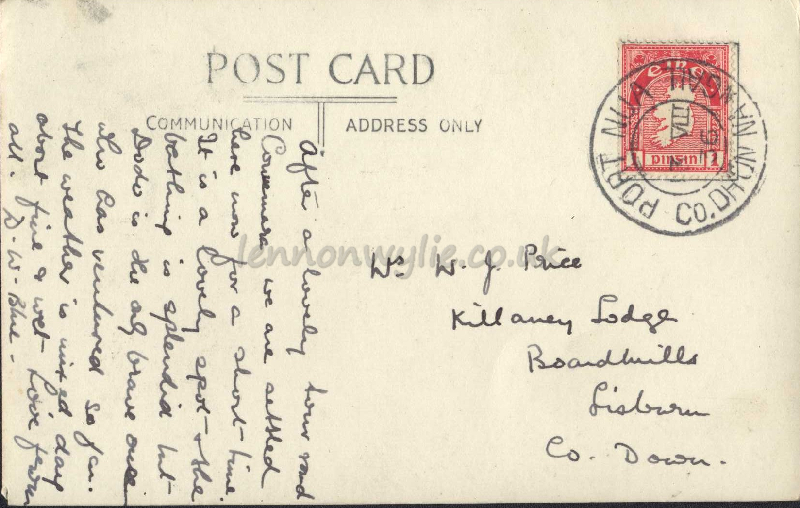 POST CARD
COMMUNICATION
ADDRESS ONLY
After a lovely tour round
Connemara we are settled
here now for a short time.
It is a lovely spot & the
bathing is splendid but
Dodo is the only brave one
who has ventured so far.
The weather is mixed day
about fine & wet. Love from
all. D. W. Blue.
W. J. Price
Killaney Lodge
Boardmills
Lisburn
Co. Down.
éire
1 pinsin 1
PORT NUA
CO. DHUN NA NGALL
VIII
lennonwylie.co.uk